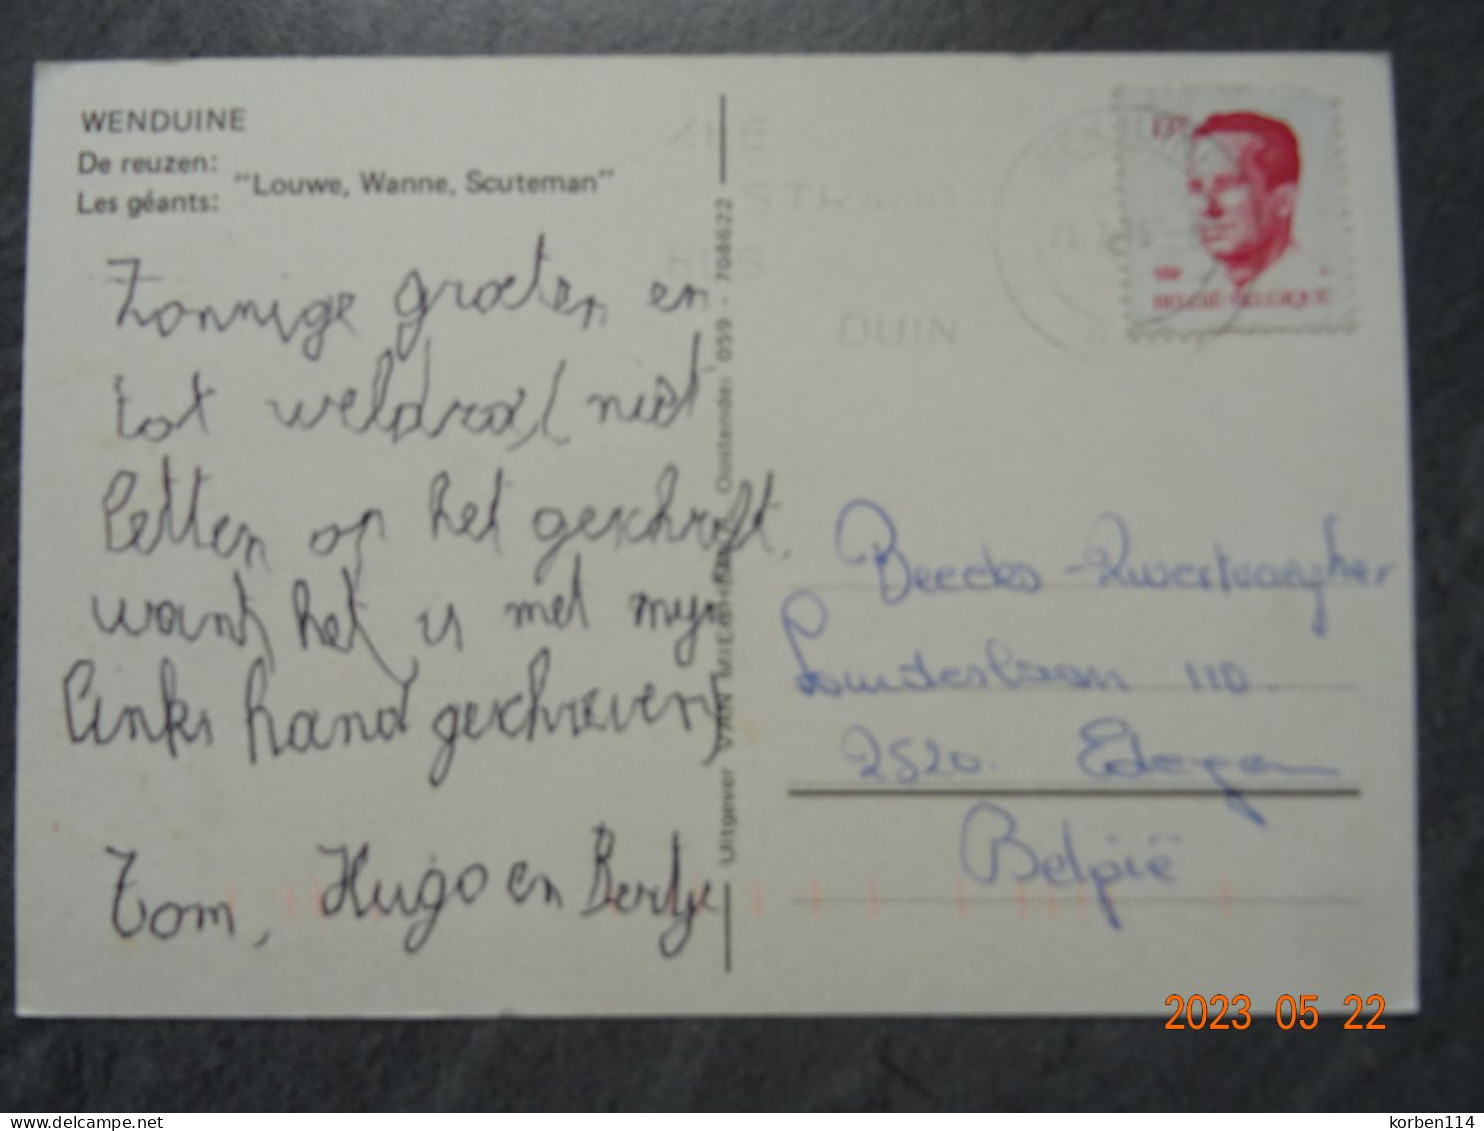 WENDUINE
De reuzen:
Les géants:
"Louwe, Wanne, Scuteman"
Zonnige groeten en
tot weldra, ( niet
letten op het geschrift,
want het is met mijn
links hand geschreven)
Tom, Hugo en Bertje
Uitgever VAN MIEGHEM Oostende: 059 - 708622
ZEE
STRAND
DUIN
13F
BELGIE-BELGIQUE
Beeckx - Zwertvaegher
Lindeslaan 110.
2520. Edegem
België
2023 05 22
delcampe.net
korben114